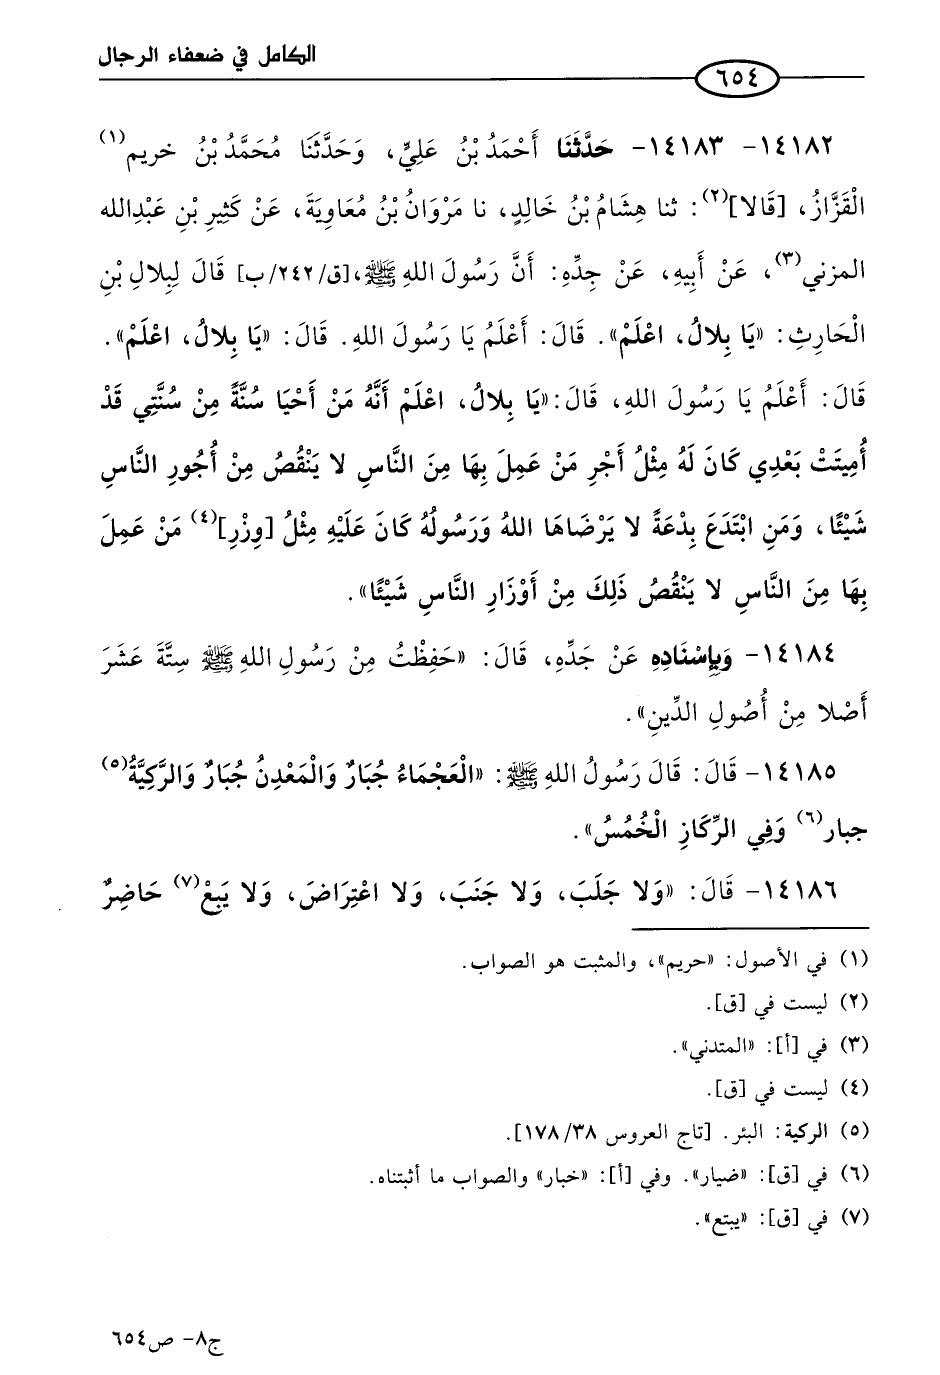 الكامل في ضعفاء الرجال
٦٥٤
١٤١٨٢- ١٤١٨٣- حَدَّثَنَا أَحْمَدُ بْنُ عَلِيٍّ، وَحَدَّثَنَا مُحَمَّدُ بْنُ خريم(١)
الْقَزَّازُ، [قَالا](٢): ثنا هِشَامُ بْنُ خَالِدٍ، نا مَرْوَانُ بْنُ مُعَاوِيَةَ، عَنْ كَثِيرِ بْنِ عَبْدِالله
المزني(٣)، عَنْ أَبِيهِ، عَنْ جِدِّهِ: أَنَّ رَسُولَ اللهِ ﷺ،[ق/٢٤٢/ب] قَالَ لِبِلالِ بْنِ
الْحَارِثِ: «يَا بِلالُ، اعْلَمْ». قَالَ: أَعْلَمُ يَا رَسُولَ اللهِ. قَالَ: «يَا بِلالُ، اعْلَمْ».
قَالَ: أَعْلَمُ يَا رَسُولَ اللهِ، قَالَ:«يَا بِلالُ، اعْلَمْ أَنَّهُ مَنْ أَحْيَا سُنَّةً مِنْ سُنَّتِي قَدْ
أُمِيتَتْ بَعْدِي كَانَ لَهُ مِثْلُ أَجْرِ مَنْ عَمِلَ بِهَا مِنَ النَّاسِ لا يَنْقُصُ مِنْ أُجُورِ النَّاسِ
شَيْئًا، وَمَنِ ابْتَدَعَ بِدْعَةً لا يَرْضَاهَا اللهُ وَرَسُولُهُ كَانَ عَلَيْهِ مِثْلُ [وِزْرِ](٤) مَنْ عَمِلَ
بِهَا مِنَ النَّاسِ لا يَنْقُصُ ذَلِكَ مِنْ أَوْزَارِ النَّاسِ شَيْئًا».
١٤١٨٤- وَبِإِسْنَادِهِ عَنْ جَدِّهِ، قَالَ: «حَفِظْتُ مِنْ رَسُولِ اللهِ ﷺ سِتَّةَ عَشَرَ
أَصْلا مِنْ أُصُولِ الدِّينِ».
١٤١٨٥- قَالَ: قَالَ رَسُولُ اللهِ ﷺ: «الْعَجْمَاءُ جُبَارٌ وَالْمَعْدِنُ جُبَارٌ وَالرَّكِيَّةُ(٥)
جبار(٦) وَفِي الرِّكَازِ الْخُمُسُ».
١٤١٨٦- قَالَ: «وَلا جَلَبَ، وَلا جَنَبَ، وَلا اعْتِرَاضَ، وَلا يَبِعْ(٧) حَاضِرٌ
(١) في الأصول: «حريم»، والمثبت هو الصواب.
(٢) ليست في [ق].
(٣) في [أ]: «المتدني».
(٤) ليست في [ق].
(٥) الركية: البئر. [تاج العروس ٣٨/ ١٧٨].
(٦) في [ق]: «ضيار». وفي [أ]: «خبار» والصواب ما أثبتناه.
(٧) في [ق]: «يبتع».
ج٨- ص٦٥٤